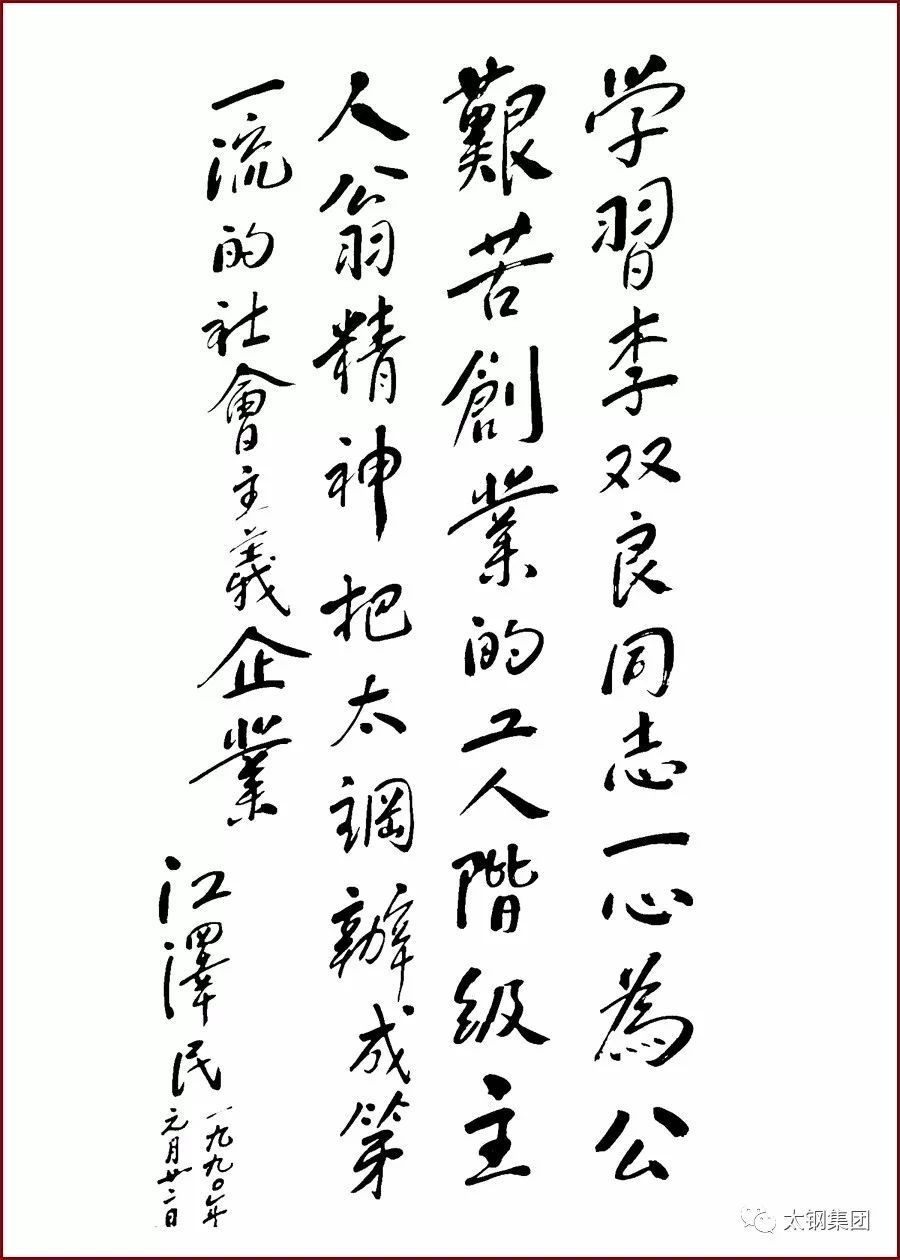 学習李双良同志一心為公
艱苦創業的工人階级主
人翁精神把太鋼辦成第
一流的社會主義企業
江澤民
一九九〇年
元月廿二日
太钢集团